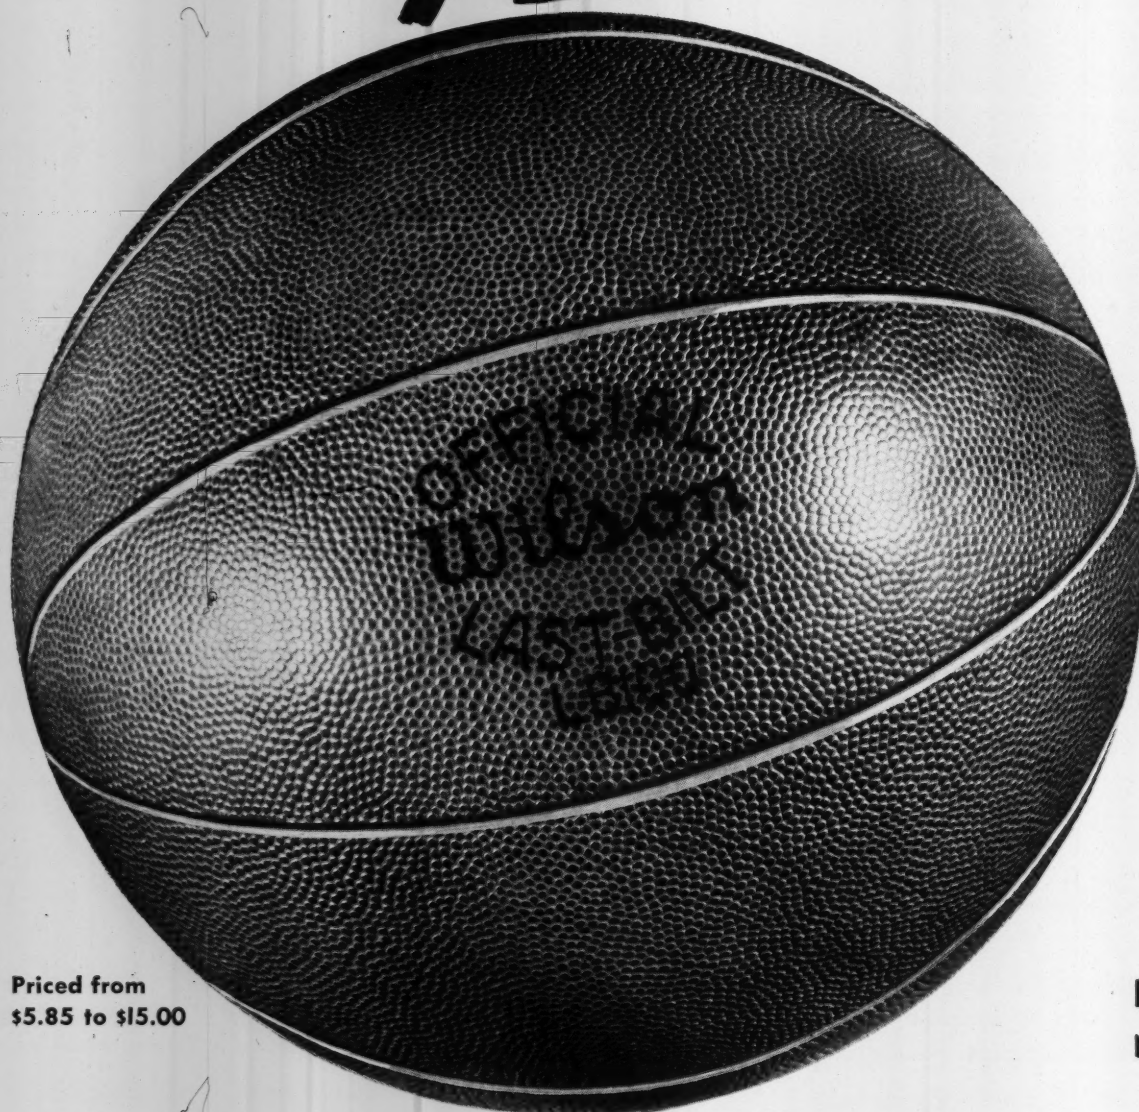 OFFICIAL
Wilson
LAST-BILT
Priced from
$5.85 to $15.00